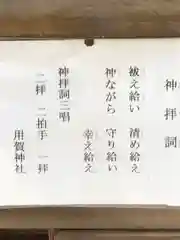 神拝詞
祓え給い 清め給え
神ながら 守り給い
幸え給え
神拝詞三唱
二拝 二拍手 一拝
用賀神社